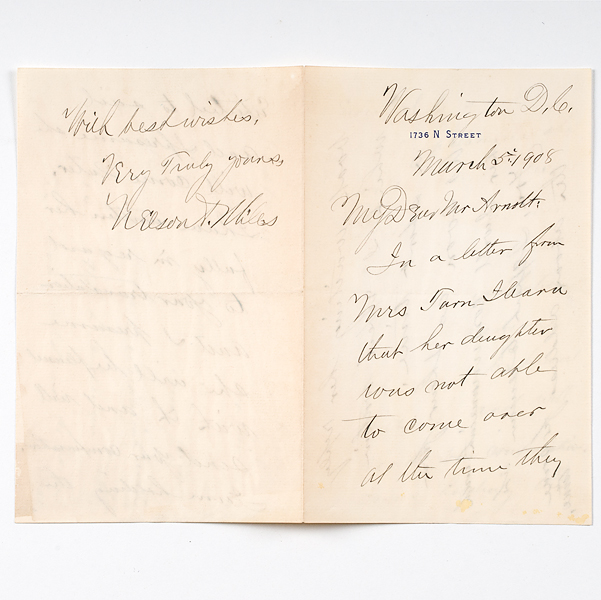 Washington D.C.
1736 N STREET
March 5th, 1908
My Dear Mr Arnott:
In a letter from
Mrs Tarn
that her daughter
was not able
to come over
at the time they
With best wishes,
Very Truly yours,
Nelson A. Miles